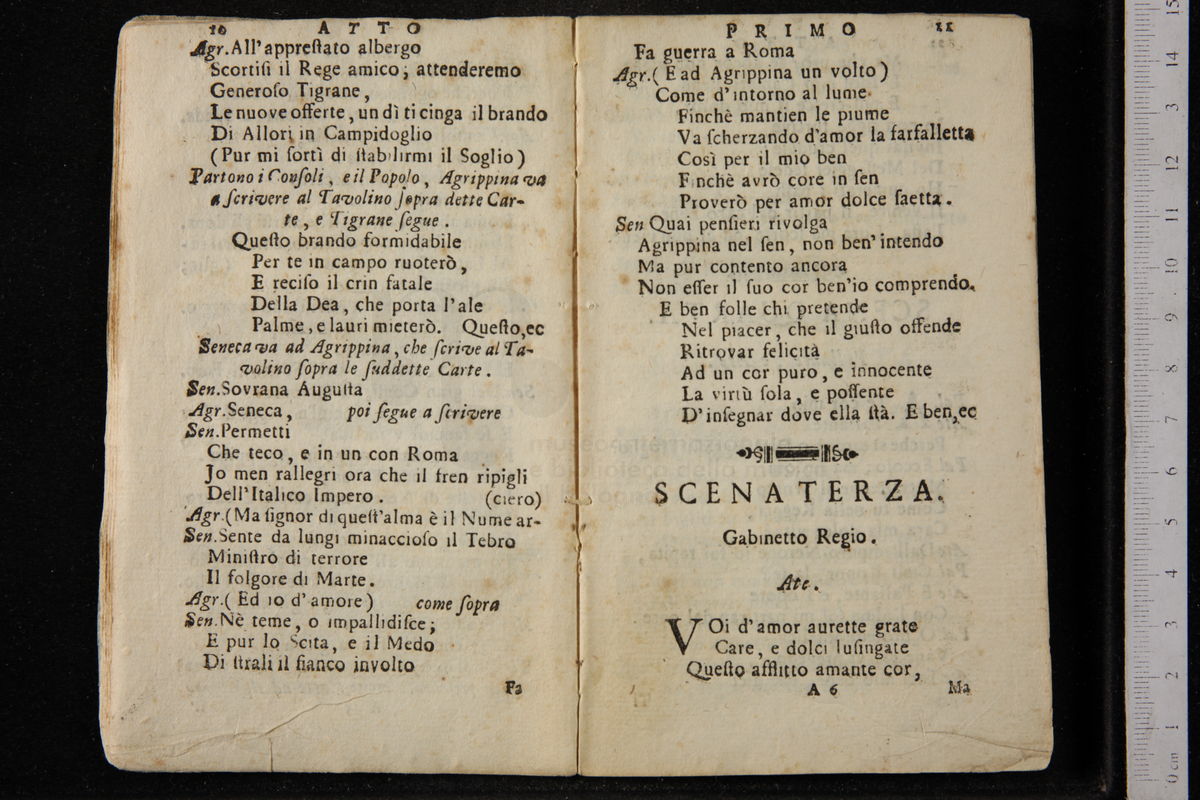 10 ATTO
Agr. All' appreſtato albergo
Scortiſi il Rege amico; attenderemo
Generoſo Tigrane,
Le nuove offerte, un dì ti cinga il brando
Di Allori in Campidoglio
(Pur mi ſortì di ſtabilirmi il Soglio)
Partono i Conſoli, e il Popolo, Agrippina va
a ſcrivere al Tavolino ſopra dette Car-
te, e Tigrane ſegue.
Queſto brando formidabile
Per te in campo ruoterò,
E reciſo il crin fatale
Della Dea, che porta l'ale
Palme, e lauri mieterò. Queſto,ec
Seneca va ad Agrippina, che ſcrive al Ta-
volino ſopra le ſuddette Carte.
Sen. Sovrana Auguſta
Agr. Seneca, poi ſegue a ſcrivere
Sen. Permetti
Che teco, e in un con Roma
Jo men rallegri ora che il fren ripigli
Dell'Italico Impero. (ciero)
Agr. (Ma ſignor di queſt'alma è il Nume ar-
Sen. Sente da lungi minaccioſo il Tebro
Miniſtro di terrore
Il folgore di Marte.
Agr. (Ed io d'amore) come ſopra
Sen. Nè teme, o impallidiſce;
E pur lo Scita, e il Medo
Di ſtrali il fianco involto
Fa
PRIMO 11
Fa guerra a Roma
Agr. (E ad Agrippina un volto)
Come d'intorno al lume
Finchè mantien le piume
Va ſcherzando d'amor la farfalletta
Così per il mio ben
Finchè avrò core in ſen
Proverò per amor dolce ſaetta.
Sen Quai penſieri rivolga
Agrippina nel ſen, non ben' intendo
Ma pur contento ancora
Non eſſer il ſuo cor ben'io comprendo.
E ben folle chi pretende
Nel piacer, che il giuſto offende
Ritrovar felicità
Ad un cor puro, e innocente
La virtù ſola, e poſſente
D'inſegnar dove ella ſtà. E ben,ec
SCENA TERZA.
Gabinetto Regio.
Ate.
VOi d'amor aurette grate
Care, e dolci luſingate
Queſto afflitto amante cor,
A 6 Ma